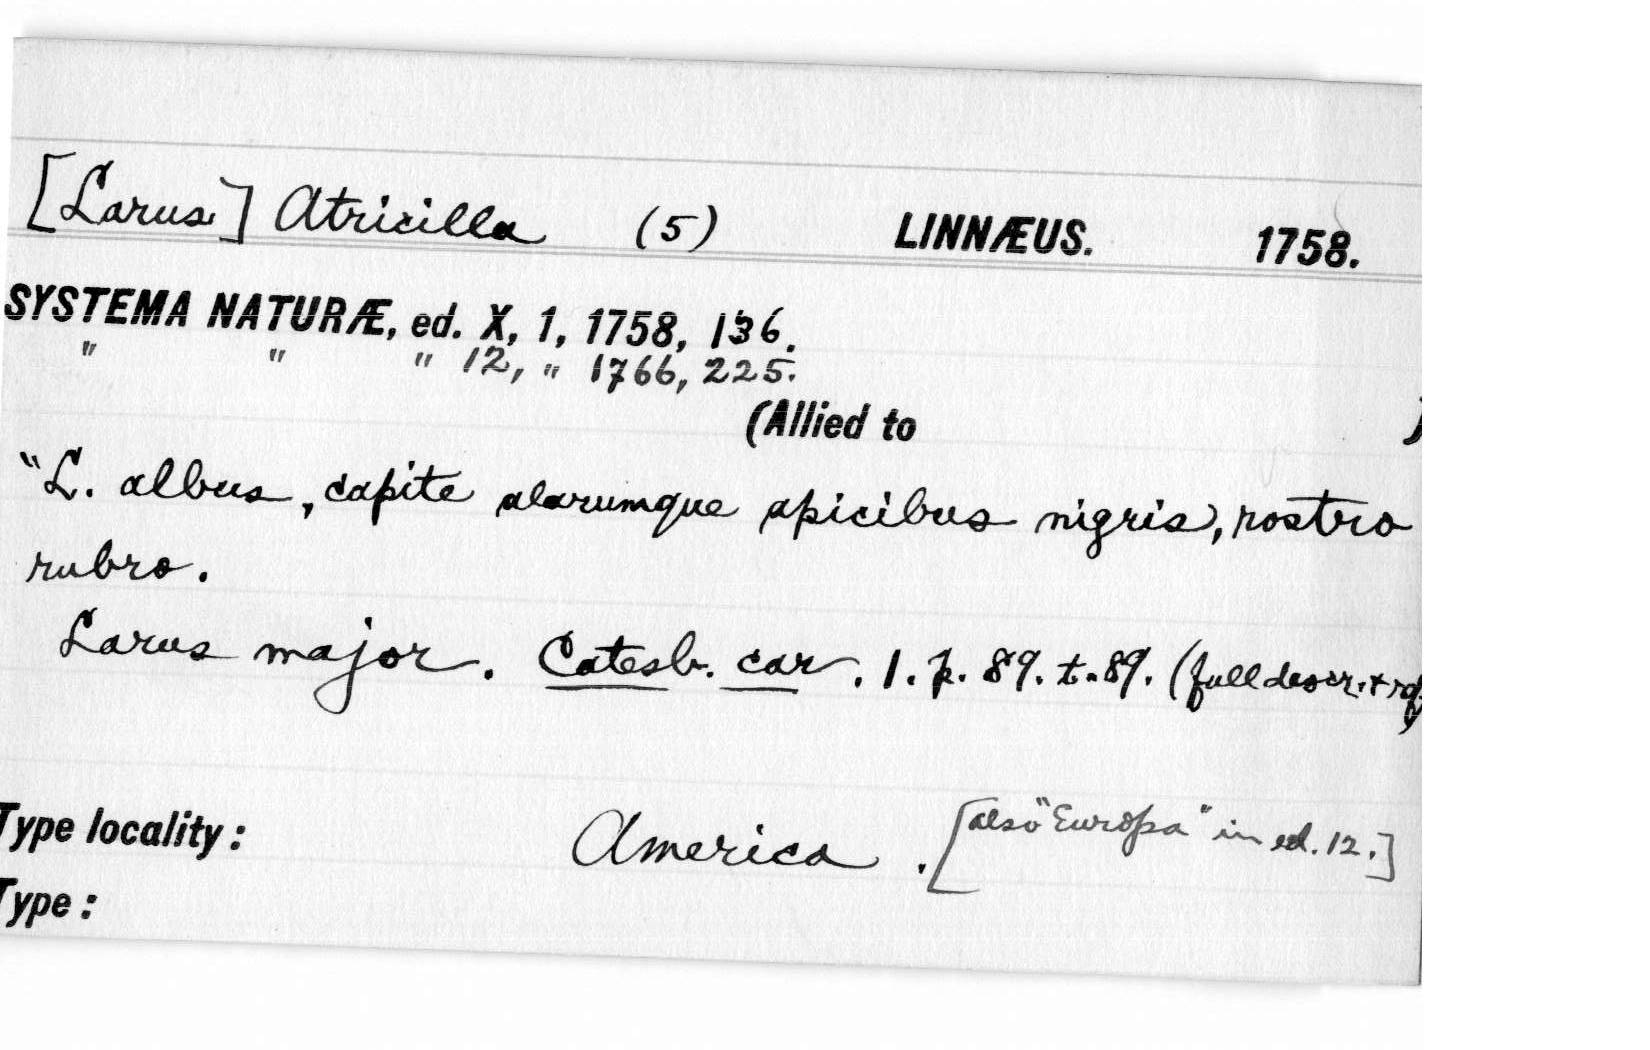 [Larus] Atricilla (5) LINNÆUS. 1758.
SYSTEMA NATURÆ, ed. X, 1, 1758, 136.
" " " 12, " 1766, 225.
(Allied to )
"L. albus, capite alarumque apicibus nigris, rostro
rubro.
Larus major. Catesb. car. 1. p. 89. t. 89. (full descr. +
Type locality: America. [also "Europa" in ed. 12.]
Type: